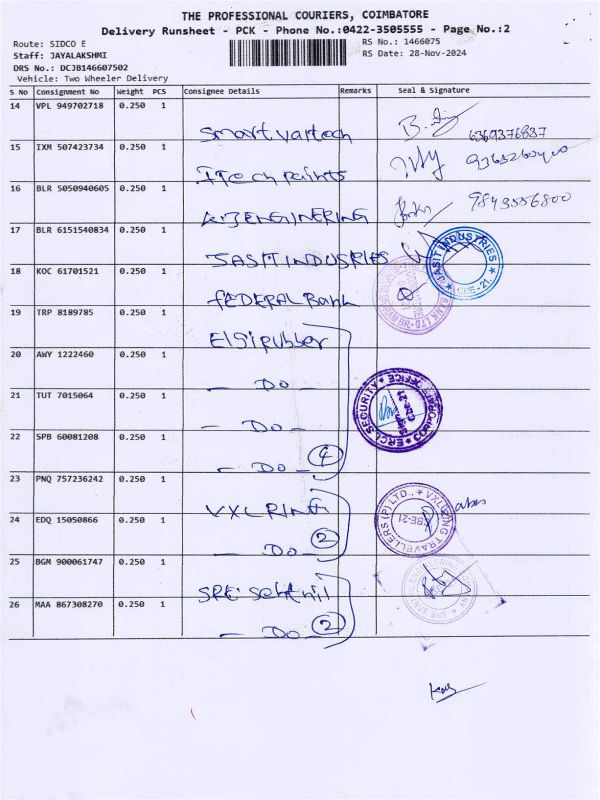 THE PROFESSIONAL COURIERS, COIMBATORE
Delivery Runsheet - PCK - Phone No.:0422-3505555 - Page No.:2
Route: SIDCO E
RS No.: 1466075
Staff: JAYALAKSHMI
RS Date: 28-Nov-2024
DRS No.: DCJB146607502
Vehicle: Two Wheeler Delivery
S No Consignment No Weight PCS Consignee Details Remarks Seal & Signature
14 VPL 949702718 0.250 1
Smart vartech 6369376837
15 IXM 507423734 0.250 1
ITech paints
16 BLR 5050940605 0.250 1
ENGINERING 9843556800
17 BLR 6151540834 0.250 1
JASIT INDUSRIES
JASIT INDUSTRIES
CBE-21
18 KOC 61701521 0.250 1
FEDERAL Bank
19 TRP 8189785 0.250 1
Elgirubber
20 AWY 1222460 0.250 1
- Do -
21 TUT 7015064 0.250 1
- Do -
ERCL SECURITY
CORPORATE OFFICE
CBE-21
22 SPB 60081208 0.250 1
- Do - 4
23 PNQ 757236242 0.250 1
VXL RING
VXL WING TRAVELLERS (P) LTD.,
CBE-21
24 EDQ 15050866 0.250 1
- Do - 2
25 BGM 900061747 0.250 1
SRE
26 MAA 867308270 0.250 1
- Do - 2